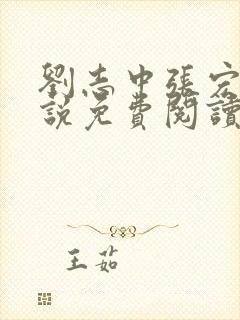 劉志中張宏
說免費閱讀
王茹